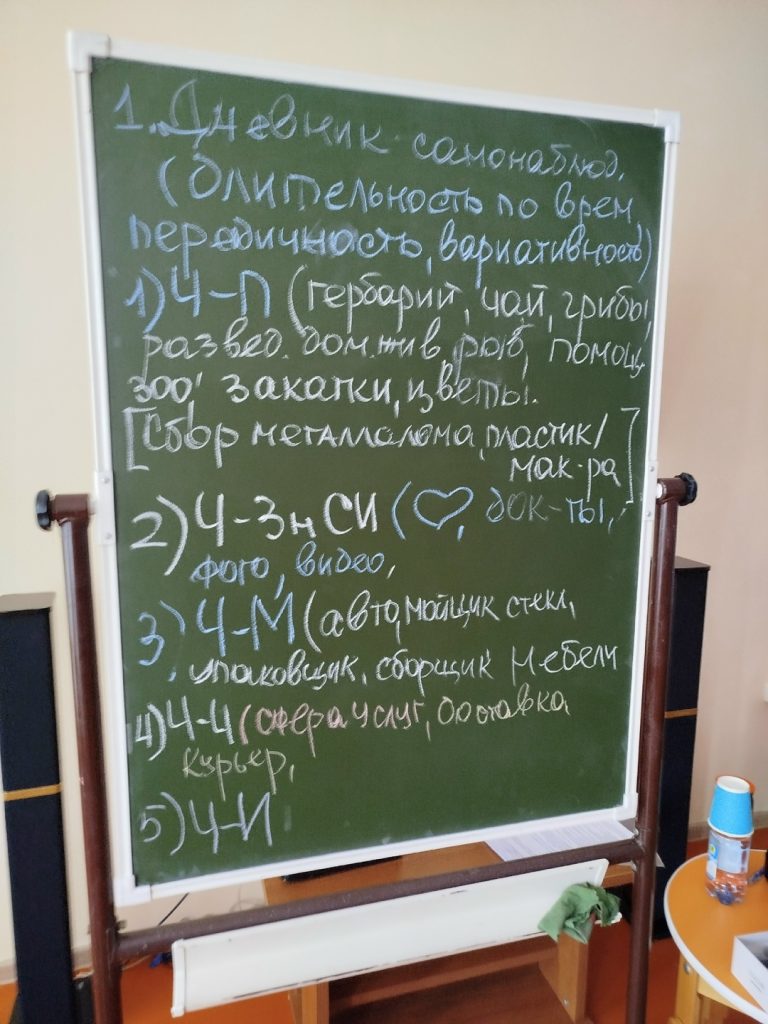 1. Дневник самонаблюд.
(длительность по врем.
передичность, вариативность)
1) Ч-П (гербарий, чай, грибы,
развед. дом. жив, рыб, помощь
зоо, закатки, цветы.
[Сбор металлолома, пластик/
мак-ра]
2) Ч-ЗнСИ (♡, док-ты,
фото, видео,
3) Ч-М (авто, мойщик стекл,
упаковщик, сборщик мебели
4) Ч-Ч (сфера услуг, доставка
курьер,
5) Ч-И